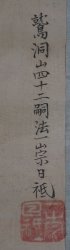 鷲洞山四十二嗣法一崇日祗